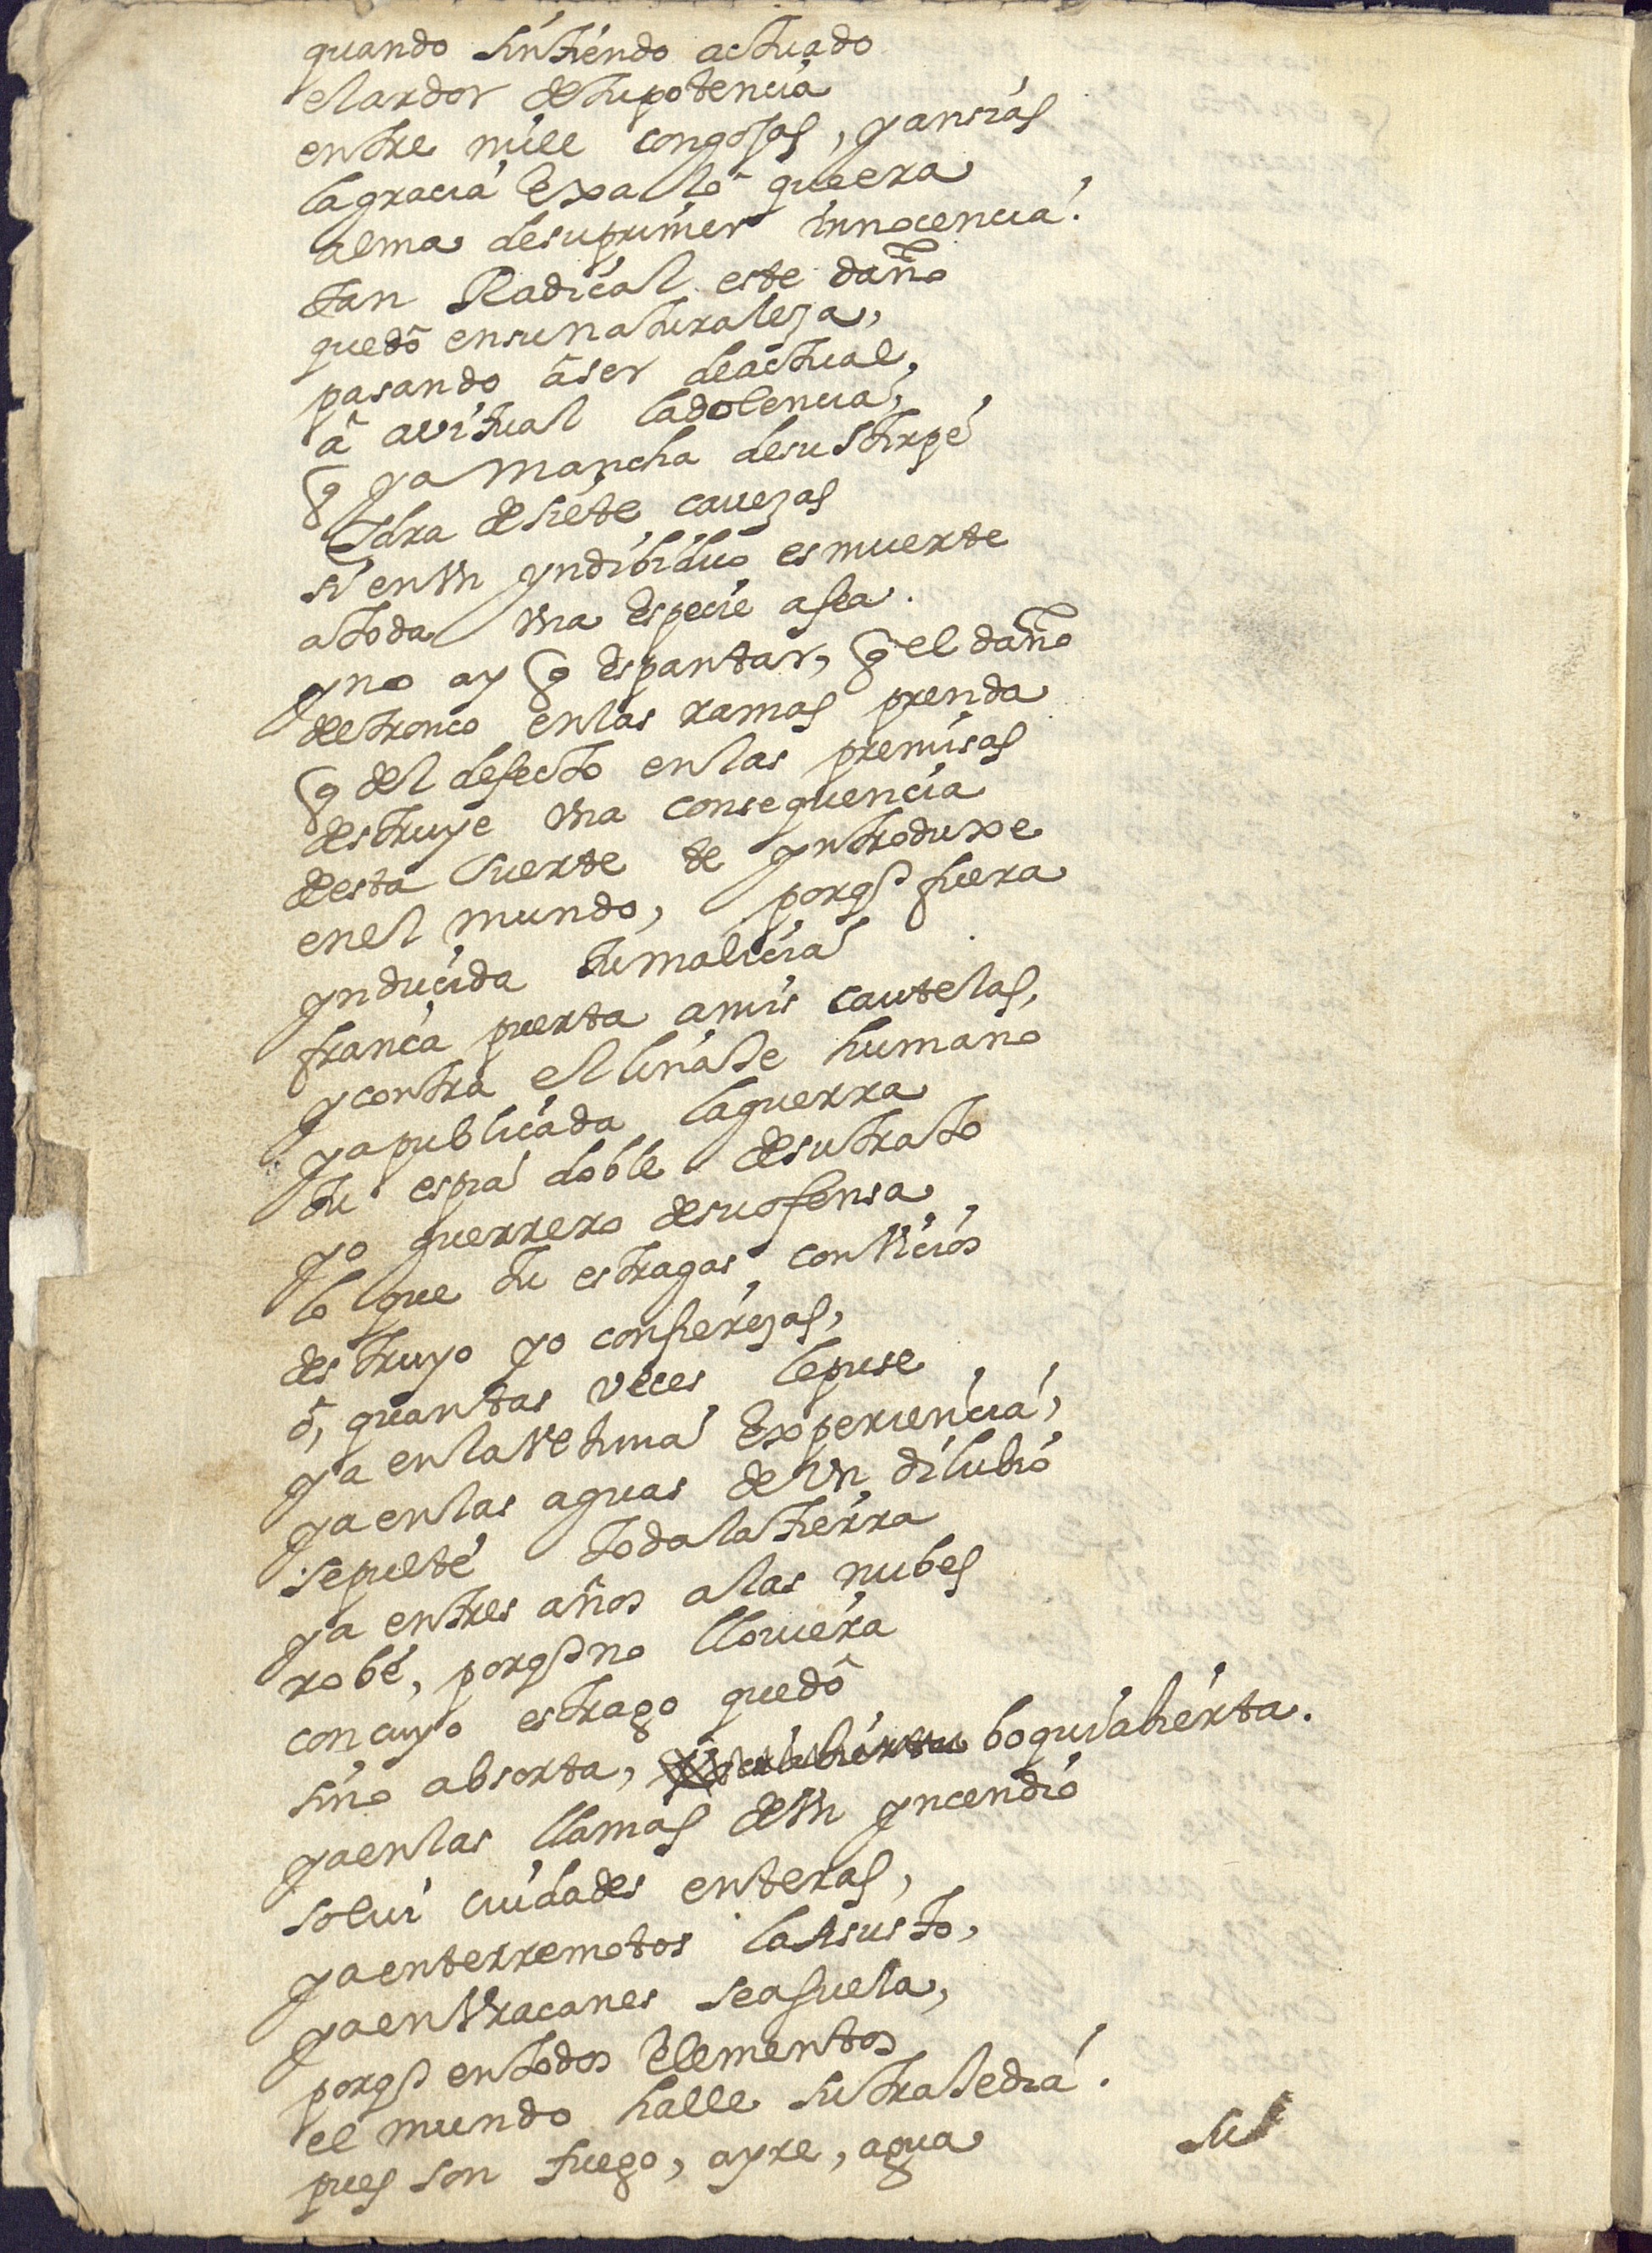 quando sintiendo actuado
elardor detupotencia
entre mill congojas, yansias
lagracia Exaló queera
alma desuprimer innocencia.
tan Radical este daño
quedó ensunaturaleza,
pasando áser deactual,
á avitual ladolencia,
q ya mancha desustirpe
Idra desiete cavezas
si enVn yndibiduo esmuerte
atoda Vna Especie afea.
yno ay q Espantar, q el daño
deltronco enlas ramas prenda
q del defecto enlas premisas
destruye Vna consequencia
desta suerte te yntroduxe
enel mundo, porq̃ fuera
ynducida tumalicia
franca puerta amis cautelas,
ycontra el linaje humano
yapublicada laguerra
tu espia doble desutrato
yo guerrero desuofensa
lo que tu estragas conVicios
destruyo yo confierezas,
ó, quantas veces lepuse
ya enlaVltima Experiencia,
yaenlas aguas deVn dilubio
sepulté todalatierra
ya entres años alas nubes
robé, porq̃ no lloviera
concuyo estrago quedó
sino absorta, boquiabierta.
yaenlas llamas deVn yncendio
solvi ciudades enteras,
yaenterremotos laAsusto,
yaenVracanes seasuela,
porq̃ entodos Elementos
el mundo halle sutrajedia.
pues son fuego, ayre, agua
su